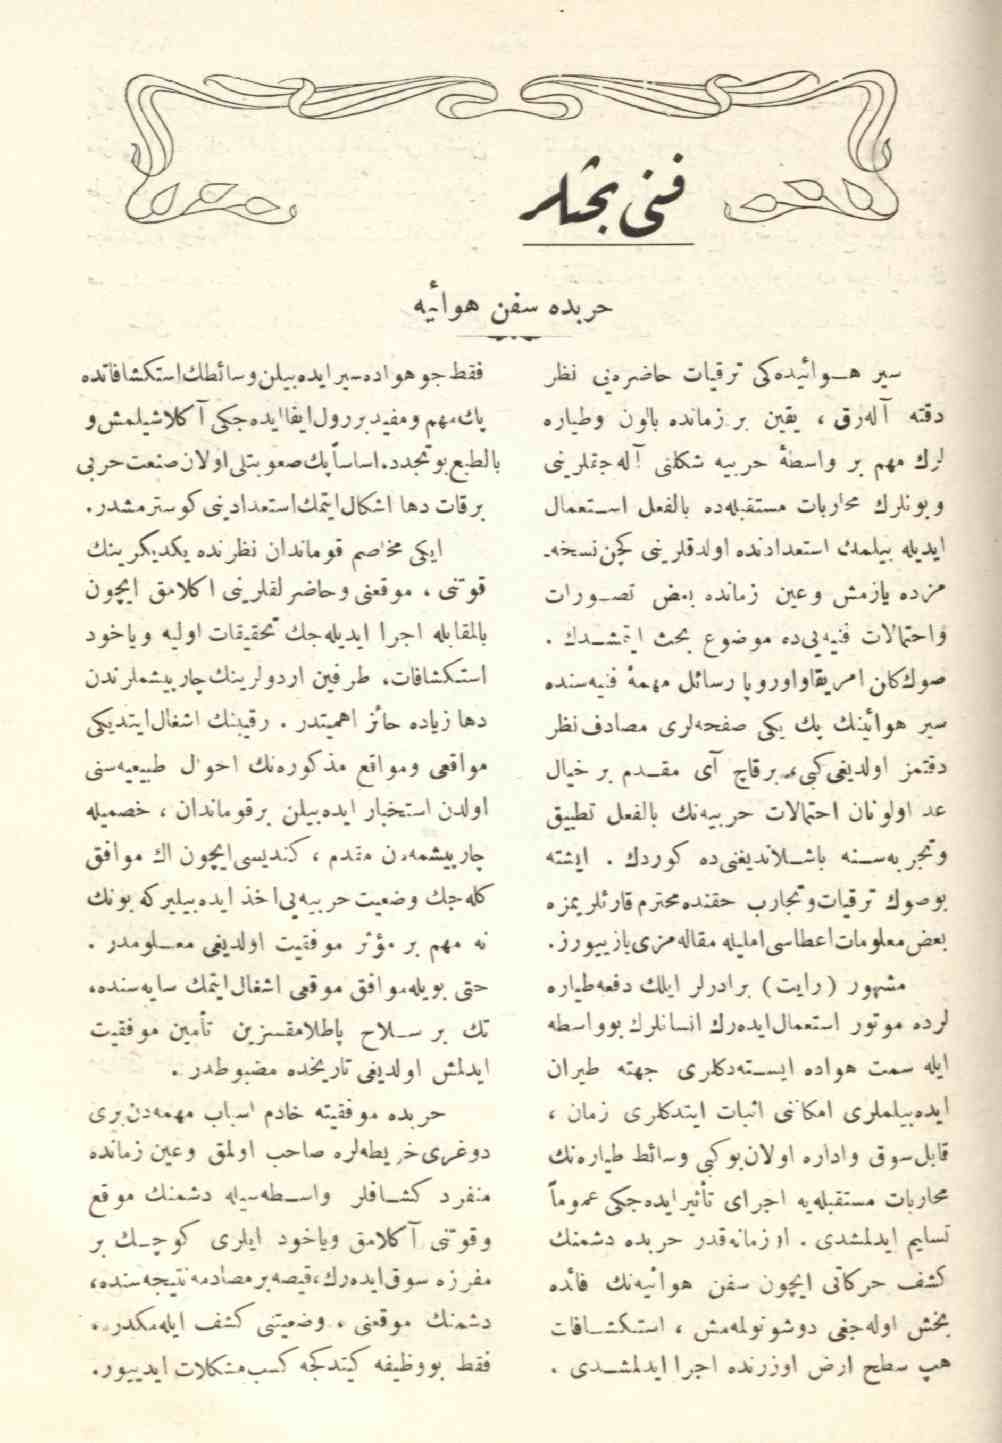 فنی بحثلر
حربده سفن هوائیه
سیر هـوائیده‌کی ترقیات حاضره‌نی نظر
دقته آله‌رق ، یقین بر زمانده بالون وطیاره
لرك مهم بر واسطهٔ حربیه شکلنی آله‌جقلرینی
وبونلرك محاربات مستقبله‌ده بالفعل اسـتعمال
ایدیله بیلمك استعدادنده اولدقلرینی کچن نسخه‌ـ
مزده یازمش وعین زمانده بعض تصـورات
واحتمالات فنیه‌یی‌ده موضوع بحث ایتمشـدك .
صوك‌کان امریقاواوروپا رسائل مهمهٔ فنیه‌سنده
سیر هوائینك پك یکی صفحه‌لری مصادف نظر
دقتمز اولدیغی‌کبی، برقاچ آی مقـدم بر خیال
عد اولونان احتمالات حربیه‌نك بالفعل تطبیق
وتجربه‌سـنه باشـلاندیغنی‌ده کوردك . ایشته
بوصوك ترقیات‌وتجارب حقنده‌محترم قارئلریمزه
بعض‌معلومات‌اعطاسی‌املیله مقاله‌مزی‌یازییورز.
مشهور (رایت) برادرلر ایلك دفعه‌طیاره
لرده موتور استعمال‌ایده‌رك انسانلرك بوواسطه
ایله سمت هواده ایسـته‌دکلری جهته طیران
ایده‌بیلملری امکاننی اثبات ایتدکلری زمان ،
قابل‌سوق واداره اولان‌بوکبی وسائط طیاره‌نك
محاربات مستقبله‌یه اجرای تأثیرایده‌جکی عموماً
تسلیم ایدلمشدی . اوزمانه‌قدر حربده دشمنك
کشف حرکاتی ایچون سفن هوائیه‌نك فائده
بخش اوله‌جغی دوشونولمه‌مش ، استکشـافات
هپ سطح ارض اوزرنده اجرا ایدلمشـدی .
فقط جو هواده‌سیرایده‌بیلن‌وسائطك‌استکشافاتده
پك‌مهم ومفیدبررول‌ایفاایده‌جکی آکلاشیلمش‌و
بالطبع‌بوتجدد،اساساًپك‌صعوبتلی‌اولان‌صنعت‌حربی
برقات دها اشکال‌ایتمك‌استعدادینی‌کوسترمشدر.
ایکی مخاصم قوماندان نظرنده یکدیکرینك
قوتنی ، موقعنی وحاضرلقلرینی اکلامق ایچون
بالمقابله اجرا ایدیله‌جك تحقیقات اولیه ویاخود
استکشافات، طرفین اردولرینك‌چارپیشملرندن
دها زیاده حائز اهمیتدر . رقیبنك اشغال‌ایتدیکی
مواقعی ومواقع مذکوره‌نك احوال طبیعیه‌سنی
اولدن استخبار ایده‌بیلن برقوماندان ، خصمیله
چارپیشمه‌دن مقدم ، کندیسی‌ایچون اك موافق
کله‌جك وضعیت حربیه‌یی‌اخذ ایده‌بیلیرکه بونك
نه مهم بر مؤثر موفقیت اولدیغی معـلومدر .
حتی بویله‌موافق موقعی اشغال‌ایتمك سایه‌سنده،
تك بر سـلاح پاطلامقسزین تأمین موفقیت
ایدلمش اولدیغی تاریخده مضبوطدر .
حربده موفقیته خادم اسباب مهمه‌دن‌بری
دوغری‌خریطه‌لره صاحب اولمق وعین زمانده
منفرد کشـافلر واسـطه‌سیله دشمنك موقع
وقوتنی آکلامق ویاخود ایلری کوچـك بر
مفرزه سوق‌ایده‌رك،قیصه‌برمصادمه‌نتیجه‌سنده،
دشمنك موقعنی ، وضعیتنی کشف ایله‌مکدر .
فقط بووظیفه کیتدکجه کسب‌مشکلات ایدییور.